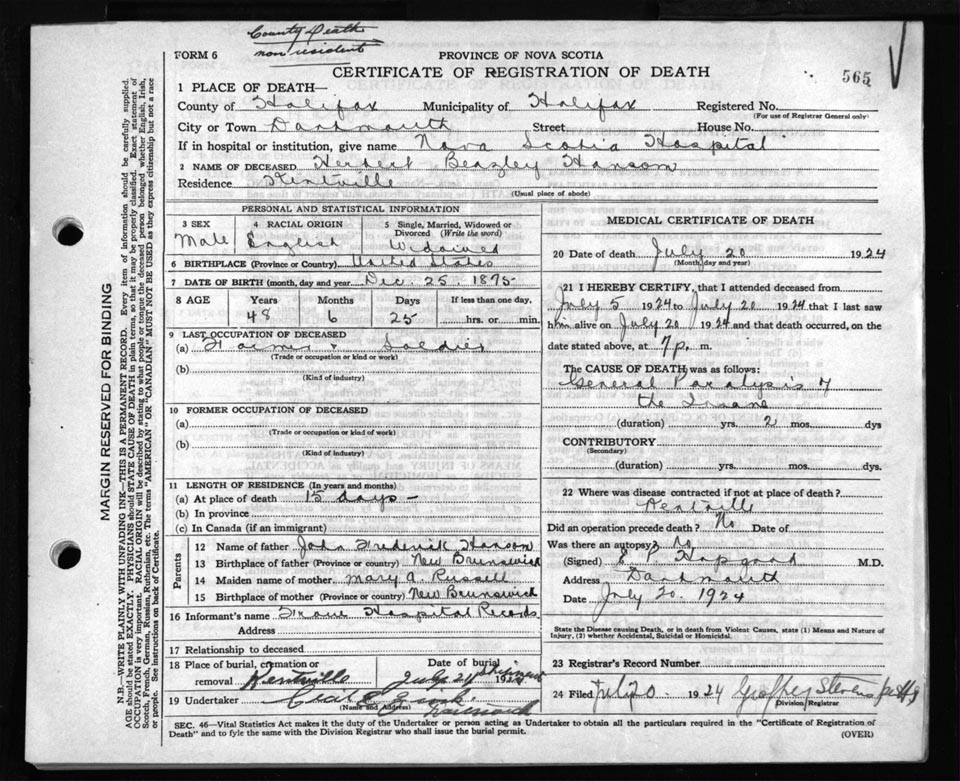 County Death
non resident
FORM 6
PROVINCE OF NOVA SCOTIA
CERTIFICATE OF REGISTRATION OF DEATH
565
1 PLACE OF DEATH—
County of Halifax Municipality of Halifax Registered No.
(For use of Registrar General only)
City or Town Dartmouth Street House No.
If in hospital or institution, give name Nova Scotia Hospital
2 NAME OF DECEASED Herbert Beazley Hanson
Residence Kentville
(Usual place of abode)
PERSONAL AND STATISTICAL INFORMATION
3 SEX Male
4 RACIAL ORIGIN English
5 Single, Married, Widowed or Divorced (Write the word) Widowed
6 BIRTHPLACE (Province or Country) United States
7 DATE OF BIRTH (month, day and year) Dec. 25. 1875
8 AGE Years Months Days If less than one day,
48 6 25 hrs. or min.
9 LAST OCCUPATION OF DECEASED
(a) Farmer & Soldier
(Trade or occupation or kind or work)
(b)
(Kind of industry)
10 FORMER OCCUPATION OF DECEASED
(a)
(Trade or occupation or kind of work)
(b)
(Kind of industry)
11 LENGTH OF RESIDENCE (In years and months)
(a) At place of death 15 days
(b) In province
(c) In Canada (if an immigrant)
Parents
12 Name of father John Frederick Hanson
13 Birthplace of father (Province or country) New Brunswick
14 Maiden name of mother Mary A. Russell
15 Birthplace of mother (Province or country) New Brunswick
16 Informant's name From Hospital Records
Address
17 Relationship to deceased
18 Place of burial, cremation or removal Kentville
Date of burial July 21 1924
19 Undertaker
(Name and Address)
MEDICAL CERTIFICATE OF DEATH
20 Date of death July 20 1924
(Month, day and year)
21 I HEREBY CERTIFY, that I attended deceased from
July 5 1924 to July 20 1924 that I last saw
him alive on July 20 1924 and that death occurred, on the
date stated above, at 7 p. m.
The CAUSE OF DEATH was as follows:
General Paralysis of
the Insane
(duration) yrs. 2 mos. dys
CONTRIBUTORY
(Secondary)
(duration) yrs. mos. dys.
22 Where was disease contracted if not at place of death?
Kentville
Did an operation precede death? No Date of
Was there an autopsy? No
(Signed) Hopgood M.D.
Address Dartmouth
Date July 20. 1924
State the Disease causing Death, or in death from Violent Causes, state (1) Means and Nature of
Injury, (2) whether Accidental, Suicidal or Homicidal.
23 Registrar's Record Number
24 Filed July 20 1924 Geoffrey Stevens
Division Registrar
SEC. 46—Vital Statistics Act makes it the duty of the Undertaker or person acting as Undertaker to obtain all the particulars required in the "Certificate of Registration of
Death" and to fyle the same with the Division Registrar who shall issue the burial permit.
(OVER)
MARGIN RESERVED FOR BINDING
N.B.—WRITE PLAINLY WITH UNFADING INK—THIS IS A PERMANENT RECORD. Every item of information should be carefully supplied.
AGE should be stated EXACTLY. PHYSICIANS should STATE CAUSE OF DEATH in plain terms, so that it may be properly classified. Exact statement of
OCCUPATION is very important. RACIAL ORIGIN will be described by stating to what people or tongue the deceased person belonged whether English, Irish,
Scotch, French, German, Russian, Ruthenian, etc. The terms "AMERICAN" OR "CANADIAN" MUST NOT BE USED as they express citizenship but not a race
or people. See instructions on back of Certificate.